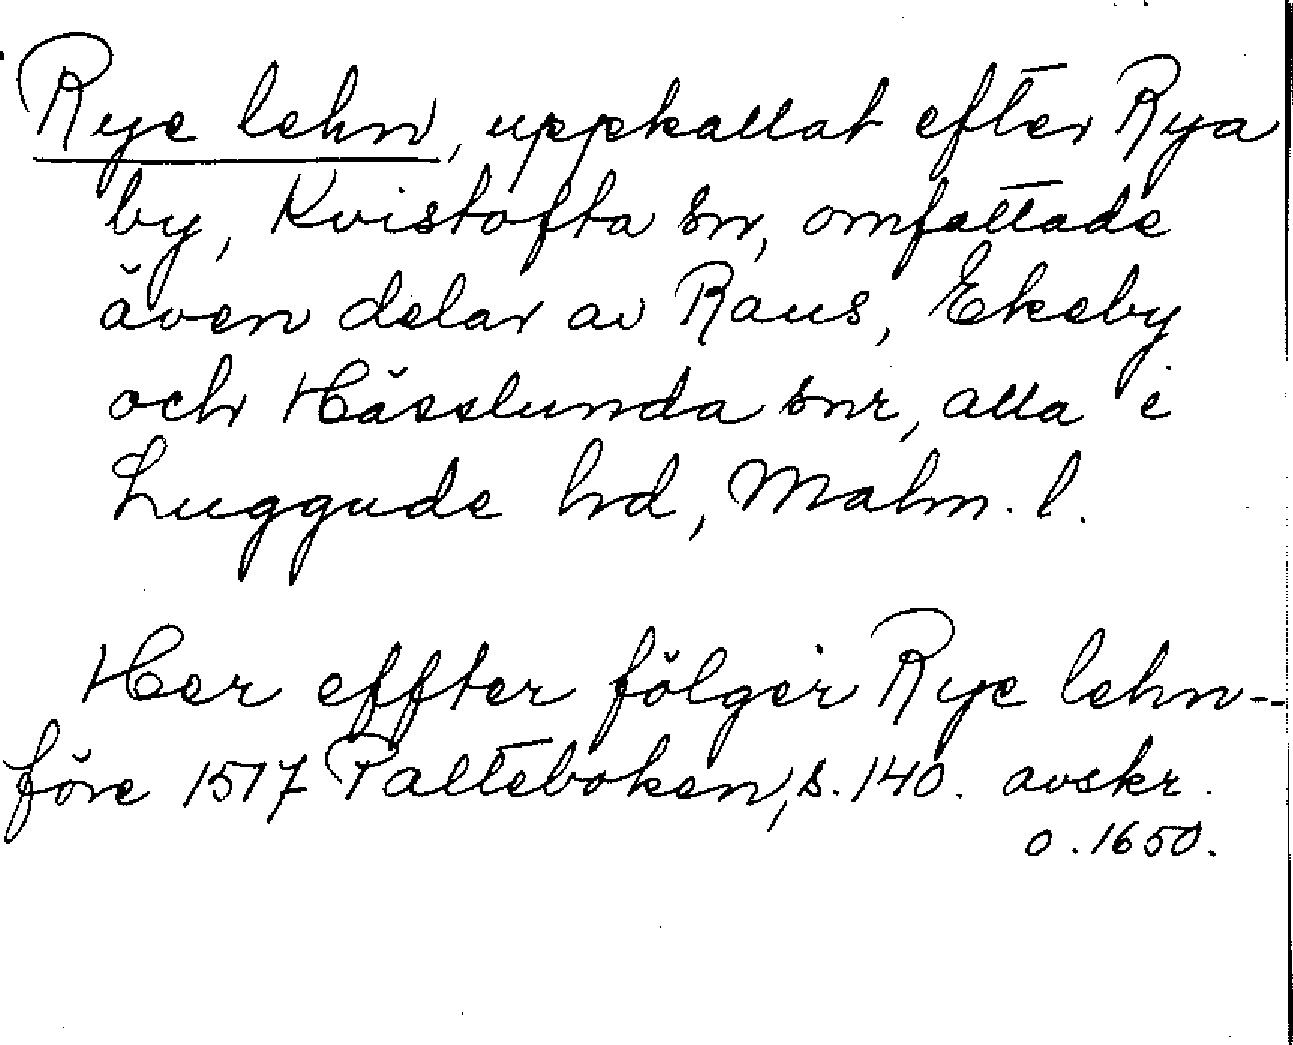 Rye lehn, uppkallat efter Rya
by, Kvistofta sn, omfattade
även delar av Raus, Ekeby
och Hässlunda snr, alla i
Luggude hd, Malm. l.
Her effter fölger Rye lehn--
före 1517 Palteboken, s. 140. avskr.
o. 1650.